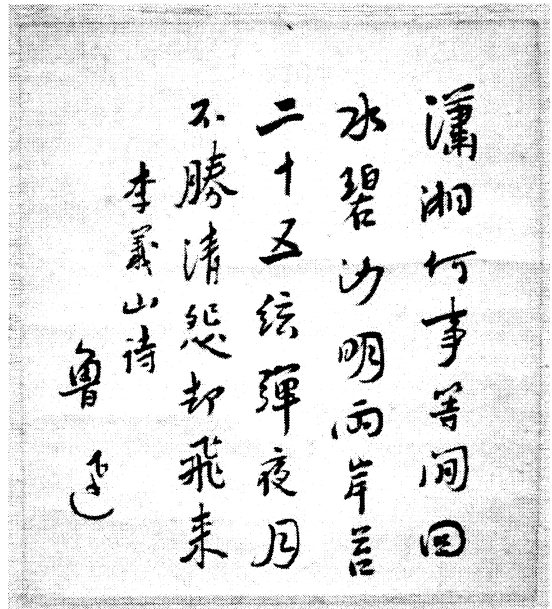 瀟湘何事等閒回
水碧沙明兩岸苔
二十五弦彈夜月
不勝清怨却飛来
李義山詩
魯迅